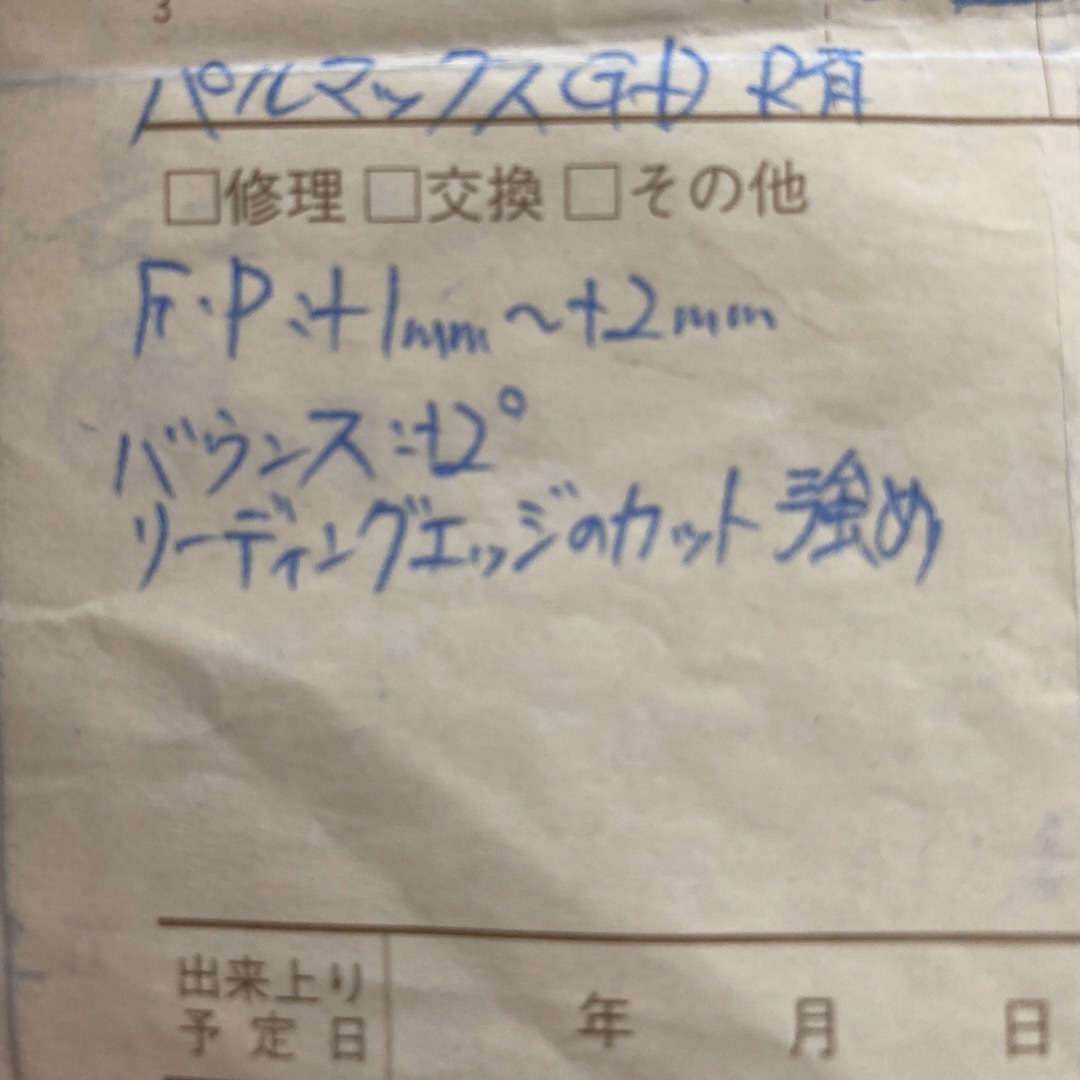 3
パルマックス R有
□修理 □交換 □その他
F.P:+1mm〜+2mm
バウンス:+2°
リーディングエッジのカット強め
出来上り
予定日 年 月 日